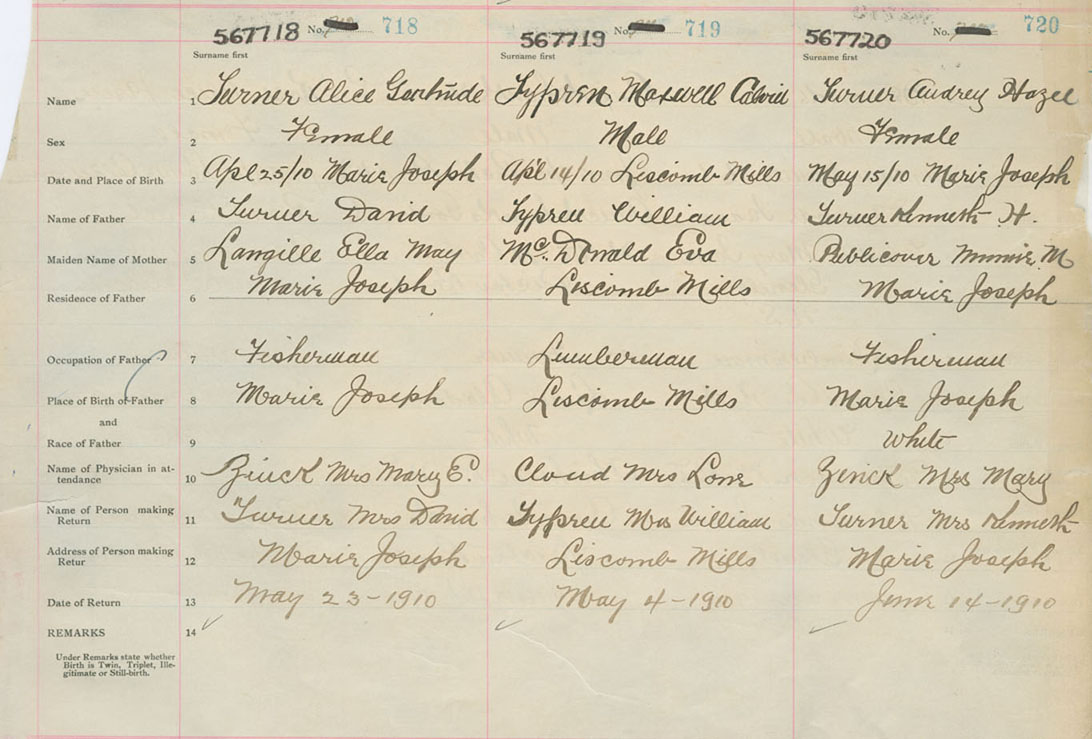 567718 No. 718 567719 No. 719 567720 No. 720
Surname first Surname first Surname first
Name 1 Turner Alice Gertrude Maxwell Calvin Turner Audrey Hazel
Sex 2 Female Male Female
Date and Place of Birth 3 Apl 25/10 Marie Joseph Apl 14/10 Liscomb Mills May 15/10 Marie Joseph
Name of Father 4 Turner David William Turner Kenneth H.
Maiden Name of Mother 5 Langille Ella May Mc. Donald Eva Publicover Minnie M
Residence of Father 6 Marie Joseph Liscomb Mills Marie Joseph
Occupation of Father 7 Fisherman Lumberman Fisherman
Place of Birth of Father 8 Marie Joseph Liscomb Mills Marie Joseph
and
Race of Father 9 White
Name of Physician in at-
tendance 10 Zinck Mrs Mary E. Cloud Mrs Zinck Mrs Mary
Name of Person making
Return 11 Turner Mrs David Mrs William Turner Mrs Kenneth
Address of Person making
Retur 12 Marie Joseph Liscomb Mills Marie Joseph
Date of Return 13 May 23-1910 May 4-1910 June 14-1910
REMARKS 14
Under Remarks state whether
Birth is Twin, Triplet, Ille-
gitimate or Still-birth.